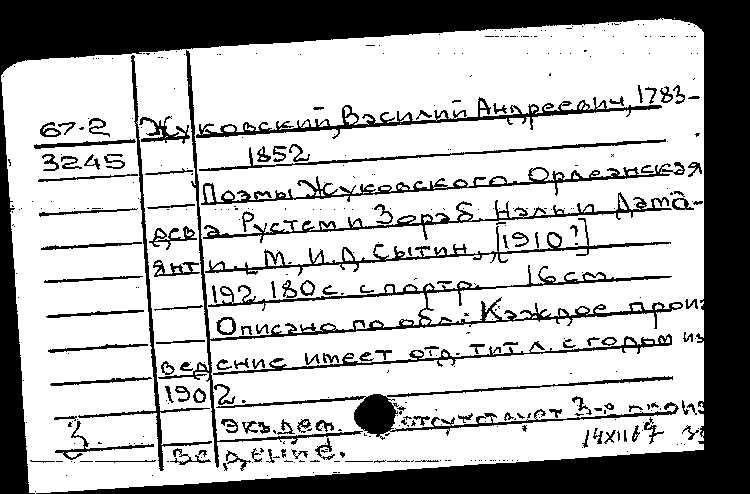 67-2 Жуковский, Василий Андреевич, 1783-
3245 1852
Поэмы Жуковского. Орлеанская
дева. Рустем и Зораб. Наль и Дама-
янти., М., И.Д. Сытин, [1910?]
192, 180 с. с портр. 16 cm.
Описано по обл.: Каждое произ
ведение имеет отд. тит. л. с годом из
1902.
Экз. деф. отсутствует 3-е произ
3 ведение.
14XII67